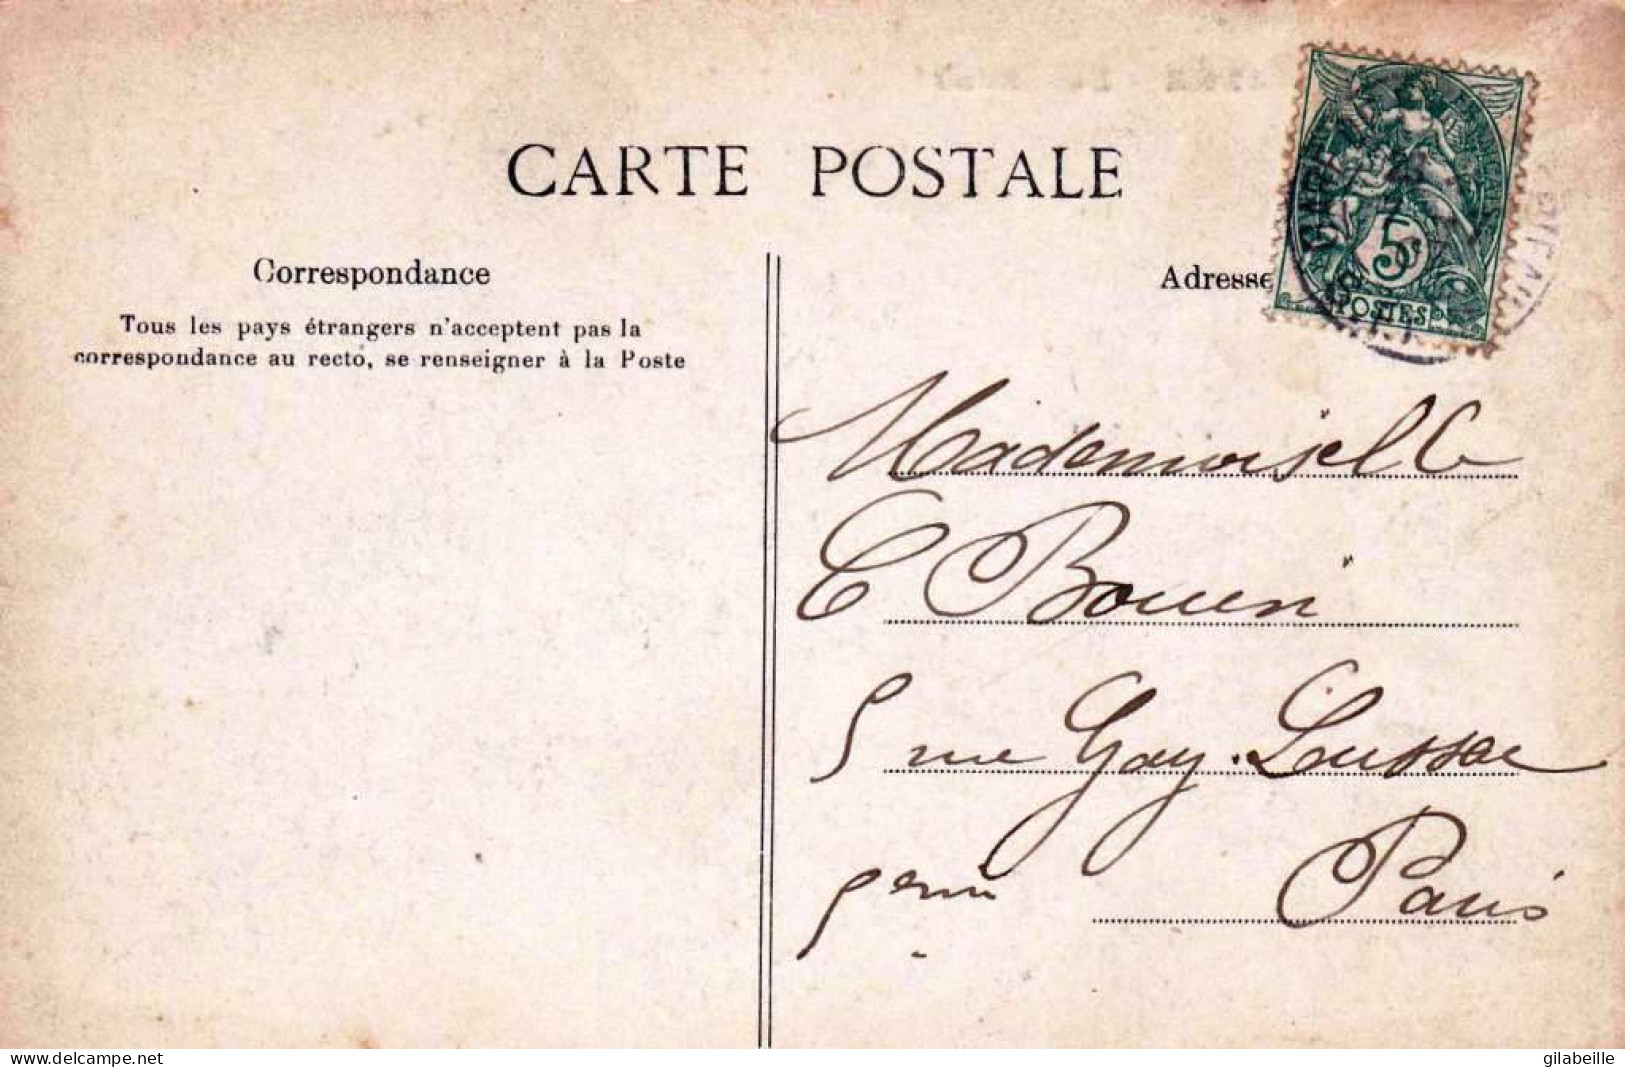 CARTE POSTALE
Correspondance
Tous les pays étrangers n'acceptent pas la
correspondance au recto, se renseigner à la Poste
Adresse
5c
POSTES
Mademoiselle
E Bouin
5 rue Gay-Lussac
5em Paris
www.delcampe.net
gilabeille